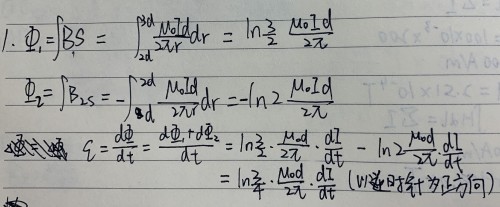 1. Φ₁=∫BS = ∫_{2d}^{3d} μ₀Id/2πr dr = ln 3/2 μ₀Id/2π
Φ₂=∫B₂S = -∫_{d}^{2d} μ₀Id/2πr dr = -ln2 μ₀Id/2π
ξ = dΦ/dt = dΦ₁+dΦ₂/dt = ln 3/2 · μ₀d/2π · dI/dt - ln2 μ₀d/2π · dI/dt
= ln 3/4 · μ₀d/2π · dI/dt (以逆时针为正方向)